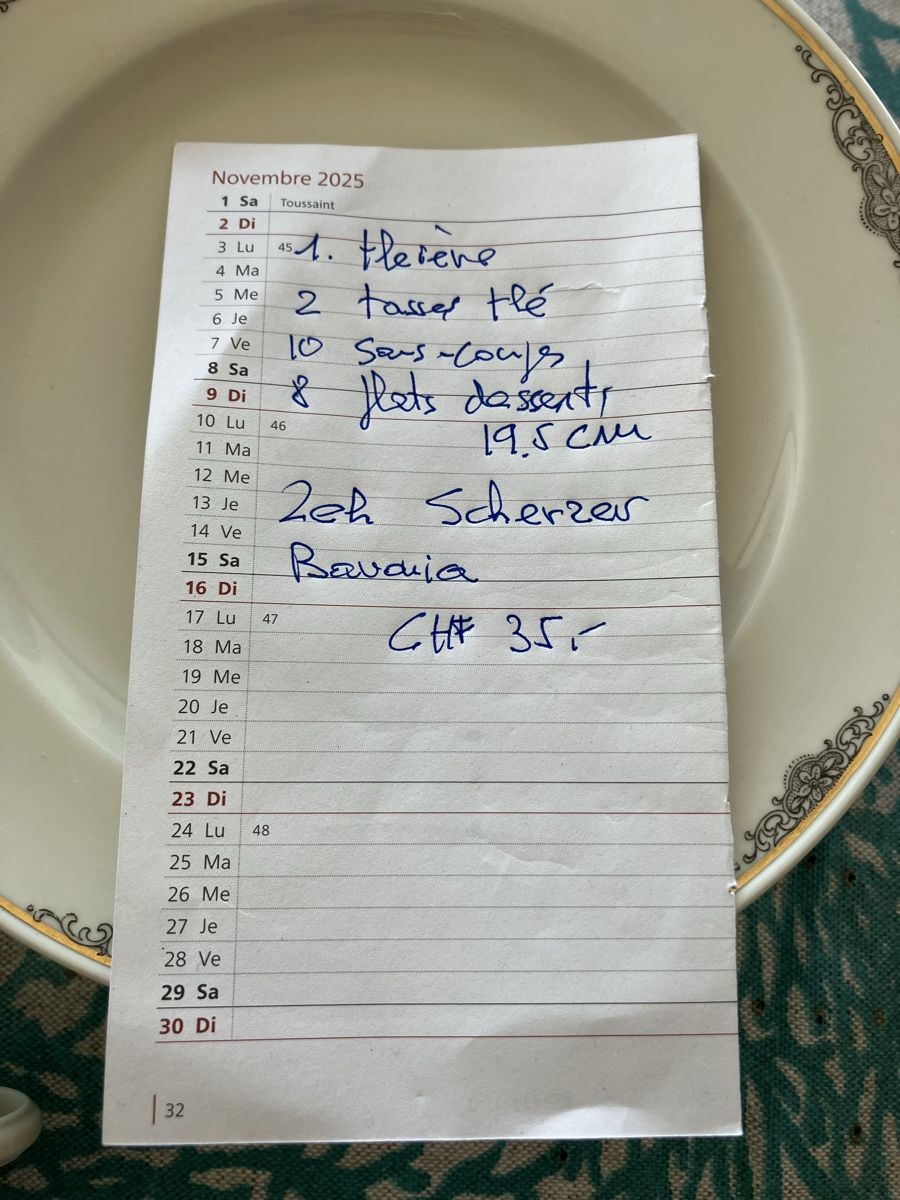 Novembre 2025
1 Sa Toussaint
2 Di
3 Lu 45 1. theière
4 Ma
5 Me 2 tasses thé
6 Je
7 Ve 10 sous-coups
8 Sa
9 Di 8 plats desserts
10 Lu 46 19.5 cm
11 Ma
12 Me
13 Je Zeh Scherzer
14 Ve
15 Sa Bavaria
16 Di
17 Lu 47 CHF 35.-
18 Ma
19 Me
20 Je
21 Ve
22 Sa
23 Di
24 Lu 48
25 Ma
26 Me
27 Je
28 Ve
29 Sa
30 Di
32